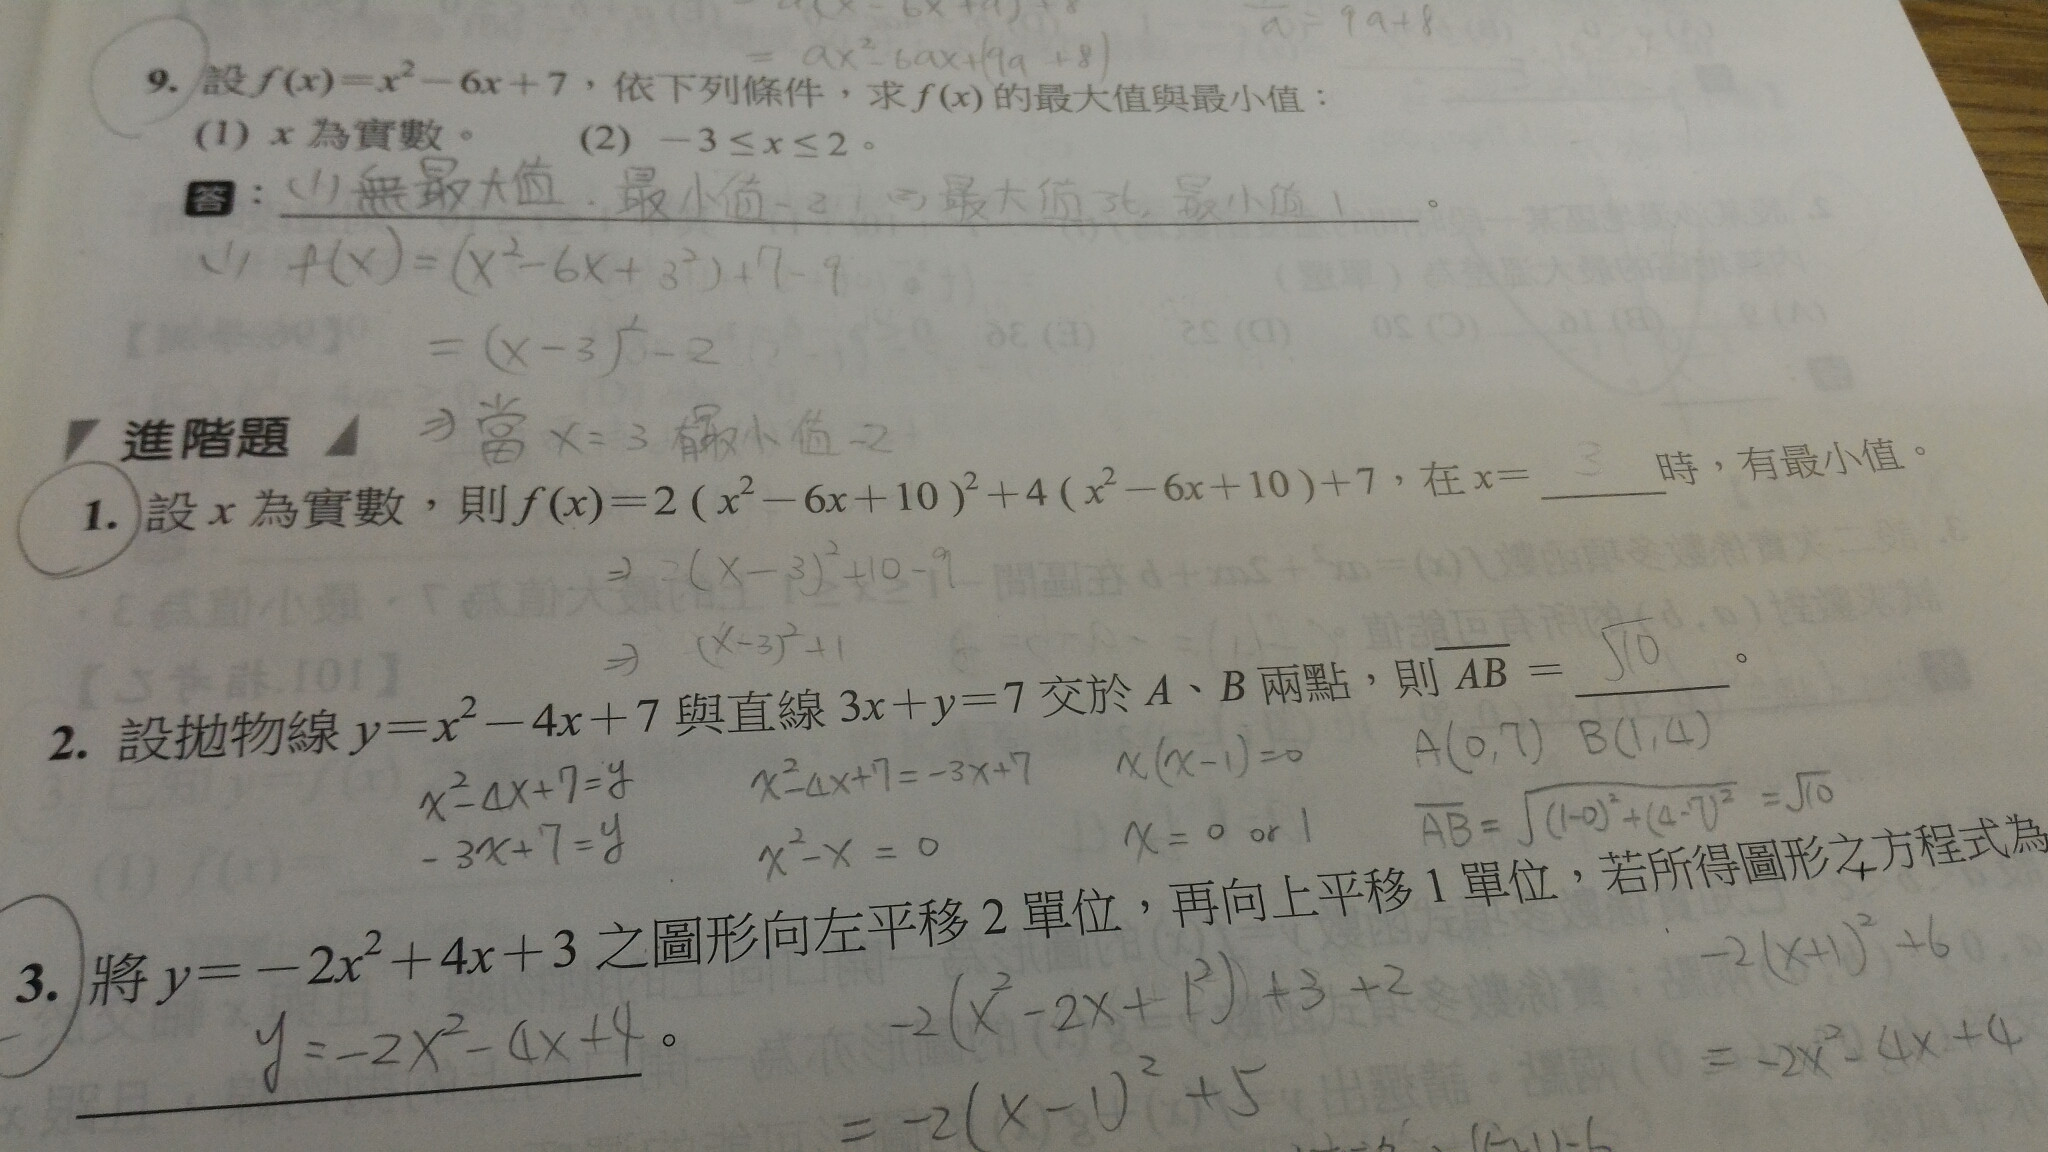 = ax²-6ax+(9a+8)
9a+8
9. 設 f(x)=x²-6x+7，依下列條件，求 f(x) 的最大值與最小值：
(1) x 為實數。 (2) -3≤x≤2。
答：(1) 無最大值．最小值-2；(2) 最大值34，最小值-1。
(1) f(x)=(x²-6x+3²)+7-9
=(x-3)²-2
⇒當 x=3 有最小值-2
進階題
1. 設 x 為實數，則 f(x)=2(x²-6x+10)²+4(x²-6x+10)+7，在 x= 3 時，有最小值。
⇒ =(x-3)²+10-9
⇒ (x-3)²+1
2. 設拋物線 y=x²-4x+7 與直線 3x+y=7 交於 A、B 兩點，則 AB = √10。
x²-4x+7=y x²-4x+7=-3x+7 x(x-1)=0 A(0,7) B(1,4)
-3x+7=y x²-x=0 x=0 or 1 AB=√(1-0)²+(4-7)² =√10
3. 將 y=-2x²+4x+3 之圖形向左平移 2 單位，再向上平移 1 單位，若所得圖形之方程式為
y=-2x²-4x+4。
-2(x²-2x+1²)+3+2 -2(x+1)²+6
=-2(x-1)²+5 =-2x²-4x+4